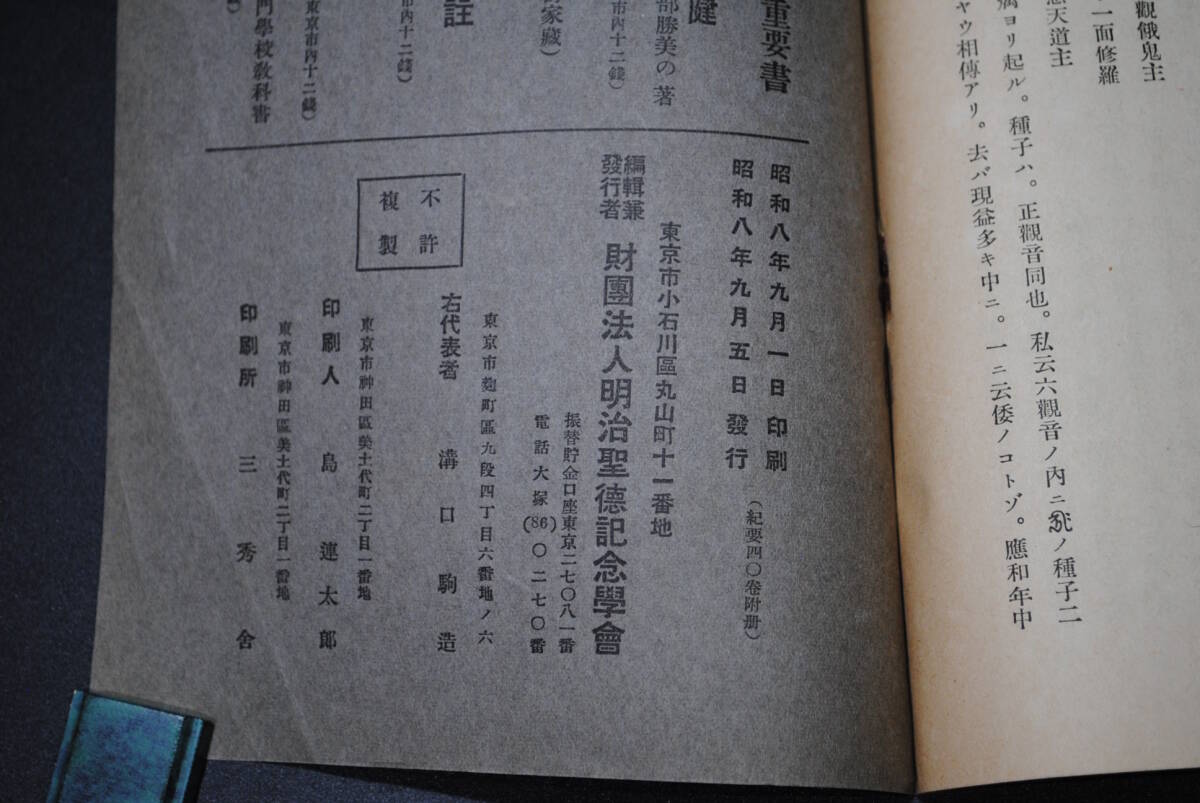 觀餓鬼主
一面修羅
天道主
ヨリ起ル。種子ハ。正觀音同也。私云六觀音ノ内ニ ノ種子二
ヤウ相傳アリ。去バ現益多キ中ニ。一ニ云倭ノコトゾ。應和年中
重要書
健
部勝美の著
市内十二錢)
家藏)
註
市内十二錢)
東京市内十二錢)
門學校敎科書
昭和八年九月一日印刷
昭和八年九月五日發行
(紀要四〇卷附册)
東京市小石川區丸山町十一番地
編輯兼
發行者
財團法人明治聖德記念學會
振替貯金口座東京二七〇八一番
電話大塚(86)〇二七〇番
東京市麹町區九段四丁目六番地ノ六
右代表者 溝口駒造
不許
複製
東京市神田區美土代町二丁目一番地
印刷人 島連太郎
東京市神田區美土代町二丁目一番地
印刷所 三秀舍